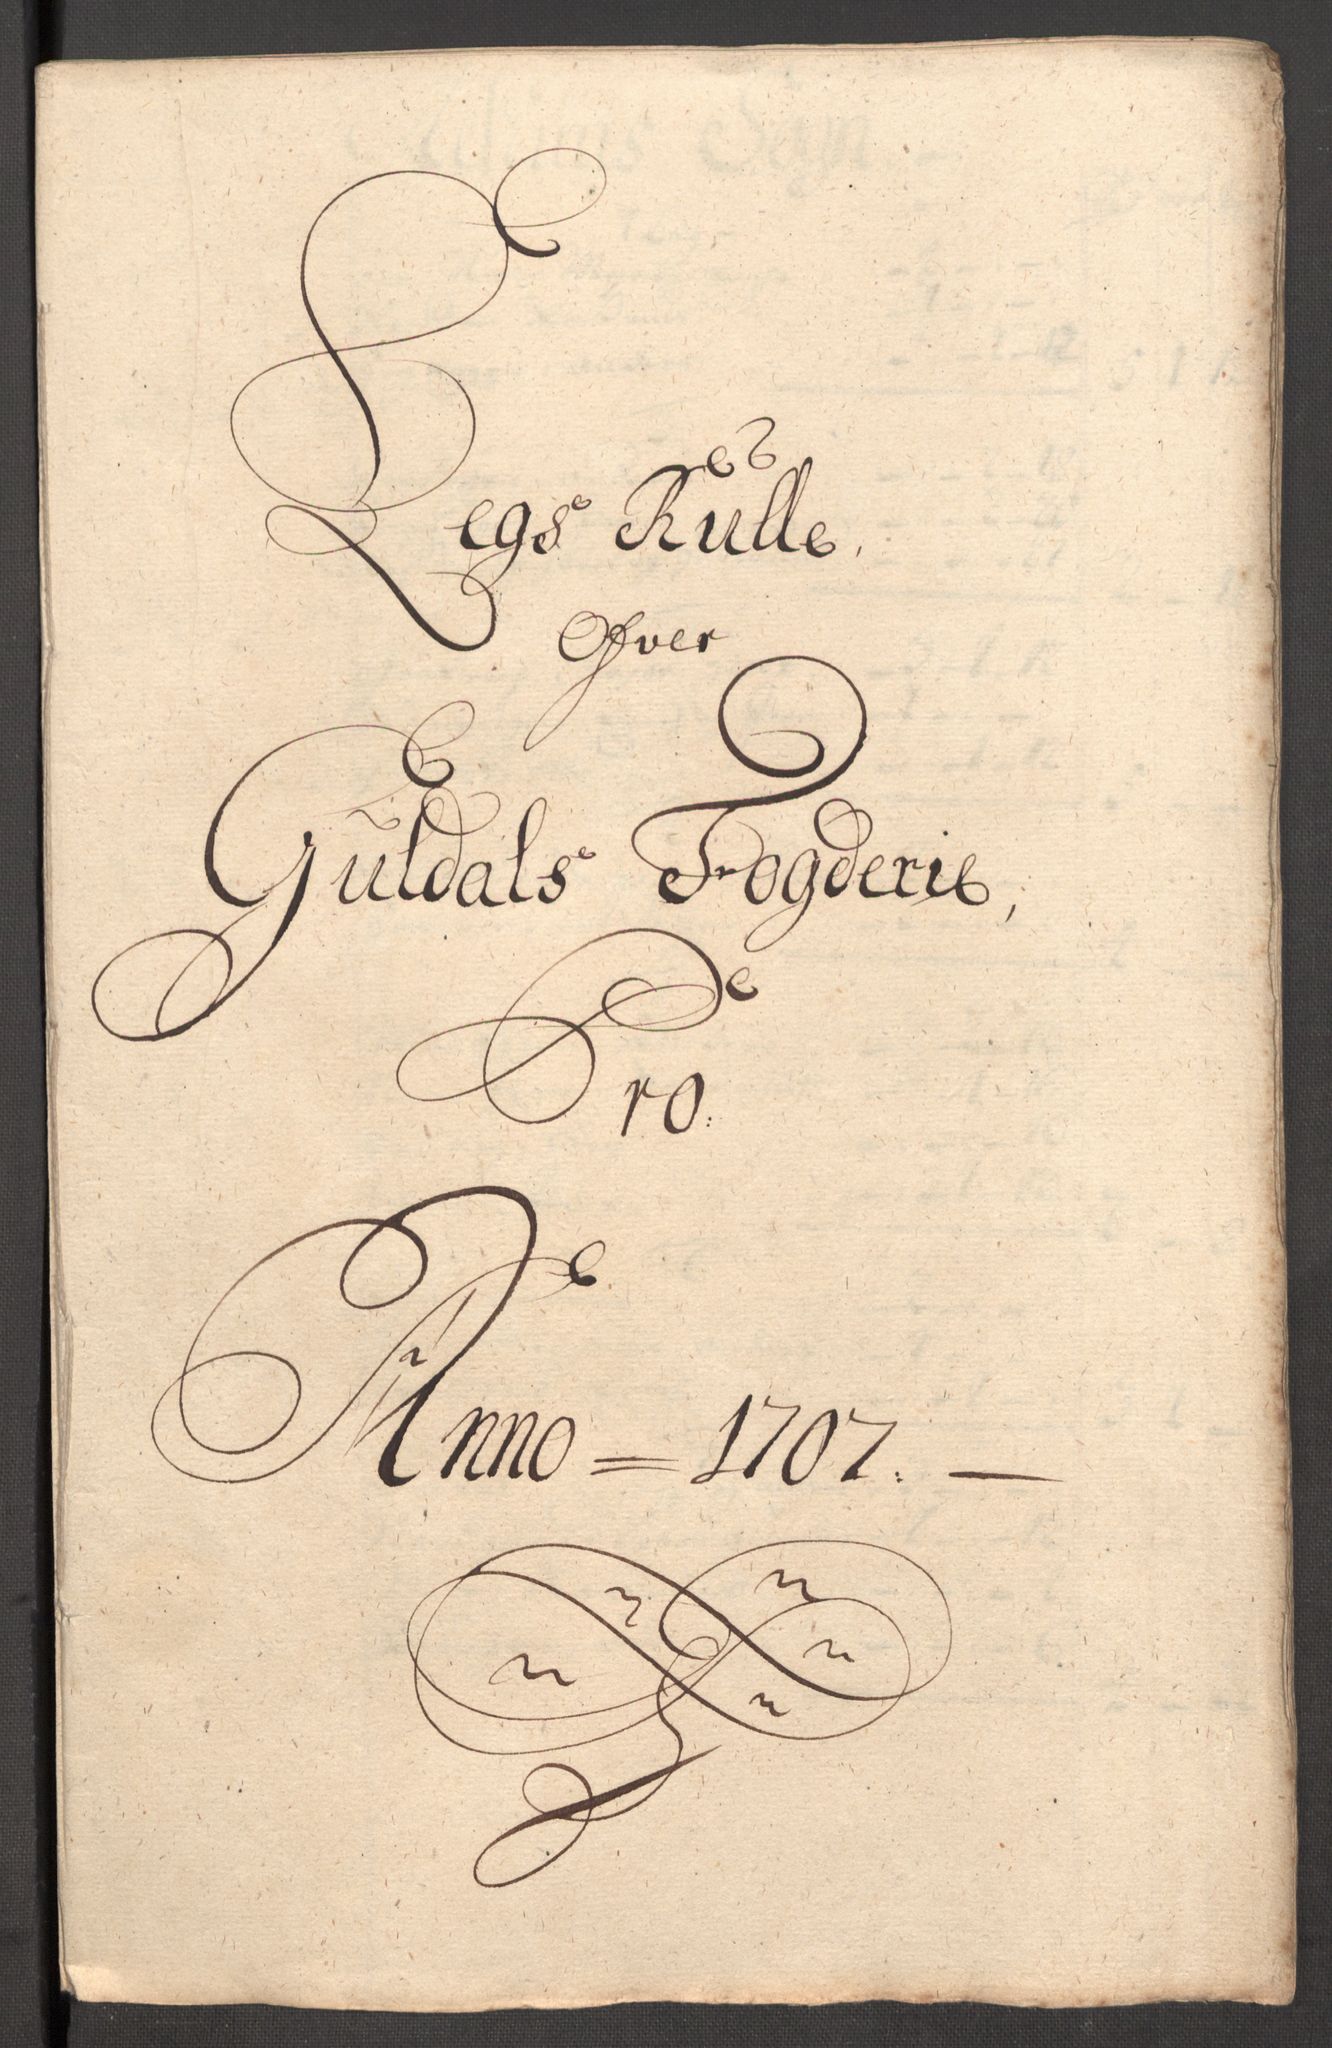 Legs Rulle,
Ofver
Guldals Fogderie,
Pro:
Anno = 1707. —